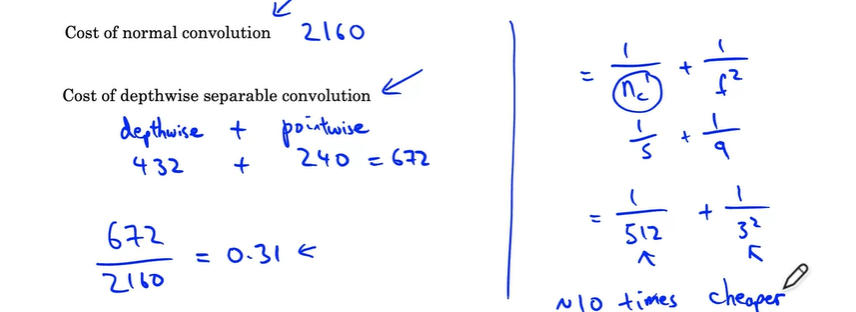 Cost of normal convolution 2160
Cost of depthwise separable convolution
depthwise + pointwise
432 + 240 = 672
672/2160 = 0.31 ←
= 1/n_c' + 1/f²
1/5 + 1/9
= 1/512 + 1/3²
~10 times cheaper